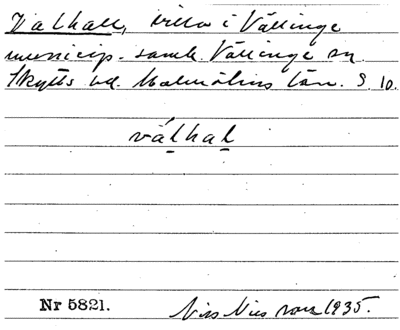 Valhall, villa i Vällinge
municip.-samh. Vällinge sn
Skytts hd. Malmöhus län. S. 10.
válhal
Nr 5821.
Nils Nilsson 1935.